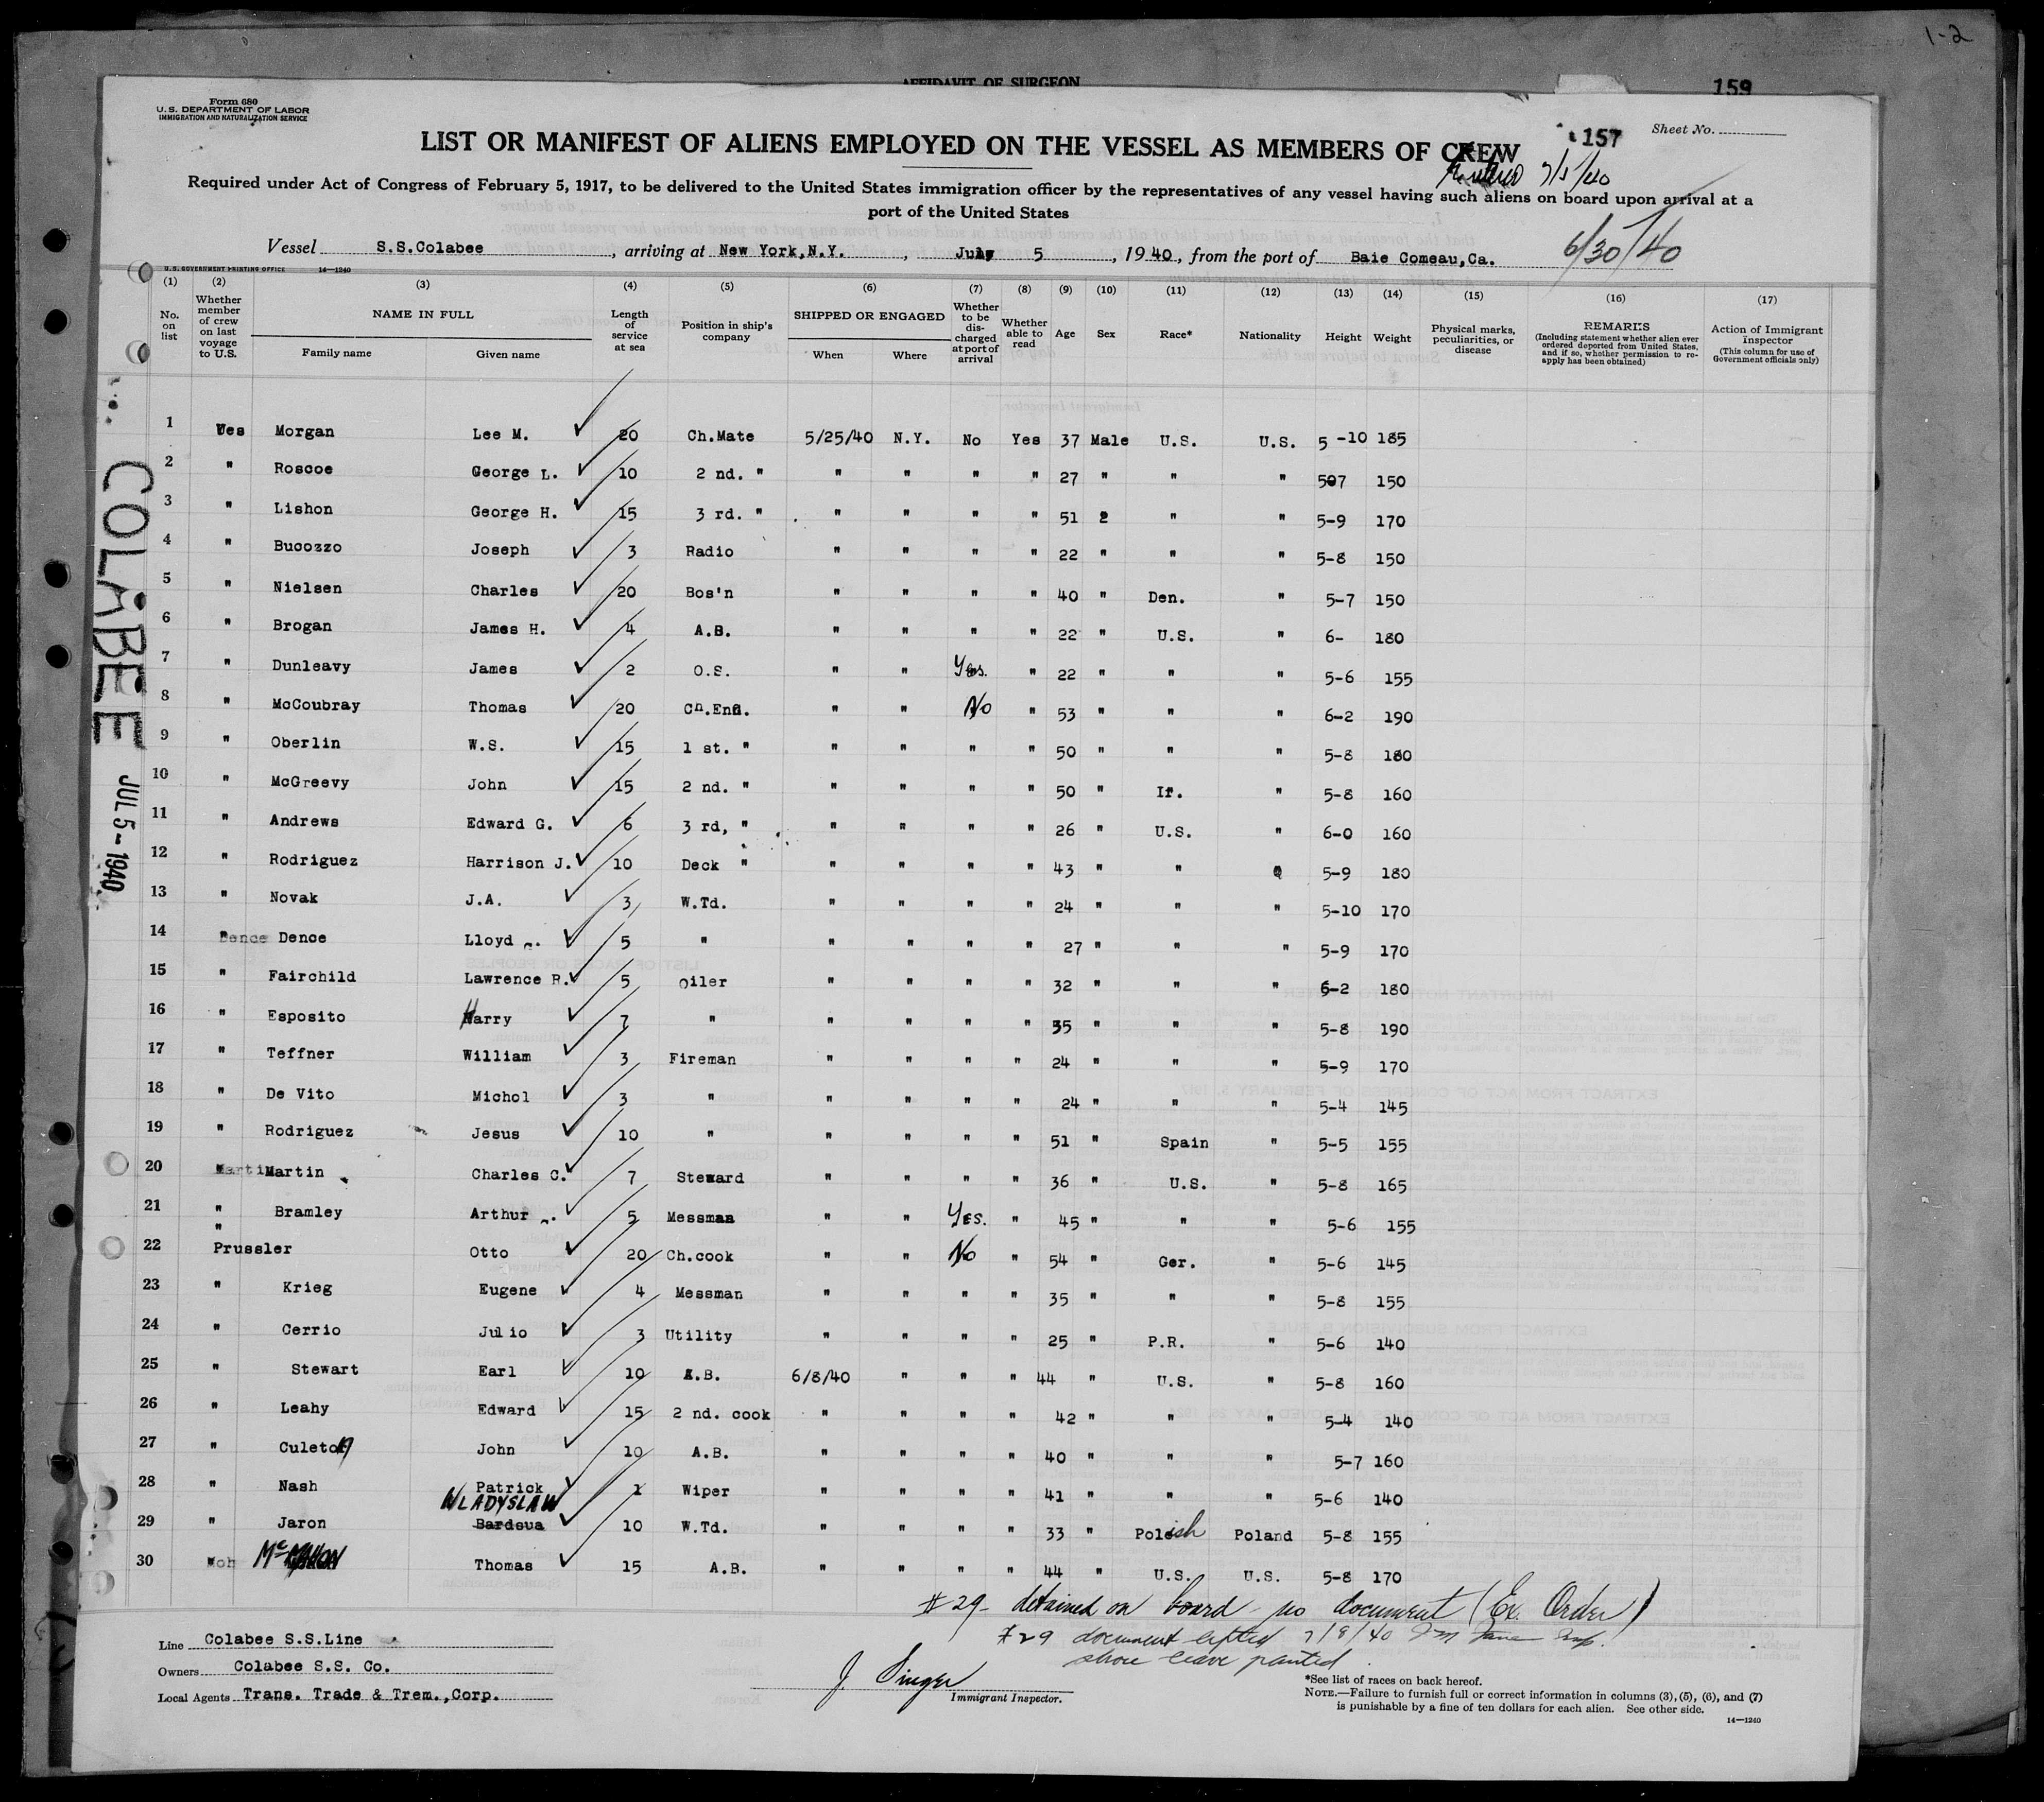 1-2
AFFIDAVIT OF SURGEON
159
Form 680
U. S. DEPARTMENT OF LABOR
IMMIGRATION AND NATURALIZATION SERVICE
157
Sheet No.
LIST OR MANIFEST OF ALIENS EMPLOYED ON THE VESSEL AS MEMBERS OF CREW
7/5/40
Required under Act of Congress of February 5, 1917, to be delivered to the United States immigration officer by the representatives of any vessel having such aliens on board upon arrival at a
port of the United States
Vessel S.S.Colabee, arriving at New York,N.Y., July 5, 1940, from the port of Baie Comeau,Ca. 6/30/40
U.S. GOVERNMENT PRINTING OFFICE 14—1240
(1) (2) (3) (4) (5) (6) (7) (8) (9) (10) (11) (12) (13) (14) (15) (16) (17)
No. on list
Whether member of crew on last voyage to U.S.
NAME IN FULL
Family name Given name
Length of service at sea
Position in ship's company
SHIPPED OR ENGAGED
When Where
Whether to be discharged at port of arrival
Whether able to read
Age Sex Race* Nationality Height Weight
Physical marks, peculiarities, or disease
REMARKS
(Including statement whether alien ever ordered deported from United States, and if so, whether permission to reapply has been obtained)
Action of Immigrant Inspector
(This column for use of Government officials only)
COLABEE
JUL 5 - 1940
1 Yes Morgan Lee M. 20 Ch.Mate 5/25/40 N.Y. No Yes 37 Male U.S. U.S. 5 -10 185
2 " Roscoe George L. 10 2 nd. " " " " " 27 " " " 507 150
3 " Lishon George H. 15 3 rd. " " " " " 51 2 " " 5-9 170
4 " Bucozzo Joseph 3 Radio " " " " 22 " " " 5-8 150
5 " Nielsen Charles 20 Bos'n " " " " 40 " Den. " 5-7 150
6 " Brogan James H. 4 A.B. " " " " 22 " U.S. " 6- 180
7 " Dunleavy James 2 O.S. " " Yes. " 22 " " " 5-6 155
8 " McCoubray Thomas 20 Ch.Eng. " " No " 53 " " " 6-2 190
9 " Oberlin W.S. 15 1 st. " " " " " 50 " " " 5-8 180
10 " McGreevy John 15 2 nd. " " " " " 50 " Ir. " 5-8 160
11 " Andrews Edward G. 6 3 rd, " " " " " 26 " U.S. " 6-0 160
12 " Rodriguez Harrison J. 10 Deck " " " " " 43 " " " 5-9 180
13 " Novak J.A. 3 W.Td. " " " " 24 " " " 5-10 170
14 " Dence Lloyd 5 " " " " " 27 " " " 5-9 170
15 " Fairchild Lawrence R. 5 Oiler " " " " 32 " " " 6-2 180
16 " Esposito Harry 7 " " " " " 35 " " " 5-8 190
17 " Teffner William 3 Fireman " " " " 24 " " " 5-9 170
18 " De Vito Michol 3 " " " " " 24 " " " 5-4 145
19 " Rodriguez Jesus 10 " " " " " 51 " Spain " 5-5 155
20 " Martin Charles C. 7 Steward " " " " 36 " U.S. " 5-8 165
21 " Bramley Arthur 5 Messman " " Yes. " 45 " " " 5-6 155
22 " Prussler Otto 20 Ch.cook " " No " 54 " Ger. " 5-6 145
23 " Krieg Eugene 4 Messman " " " " 35 " " " 5-8 155
24 " Cerrio Julio 3 Utility " " " " 25 " P.R. " 5-6 140
25 " Stewart Earl 10 A.B. 6/8/40 " " " 44 " U.S. " 5-8 160
26 " Leahy Edward 15 2 nd. cook " " " " 42 " " " 5-4 140
27 " Culeton John 10 A.B. " " " " 40 " " " 5-7 160
28 " Nash Patrick 1 Wiper " " " " 41 " " " 5-6 140
WLADYSLAW
29 " Jaron Bardsua 10 W.Td. " " " " 33 " Polish Poland 5-8 155
30 McMahon Thomas 15 A.B. " " " " 44 " U.S. U.S. 5-8 170
#29- detained on board - no document (Ex. Order)
#29 document lifted 7/8/40
shore leave granted
Line Colabee S.S.Line
Owners Colabee S.S. Co.
Local Agents Trans. Trade & Trem.,Corp.
J. Singer
Immigrant Inspector.
*See list of races on back hereof.
NOTE.—Failure to furnish full or correct information in columns (3), (5), (6), and (7)
is punishable by a fine of ten dollars for each alien. See other side.
14—1240